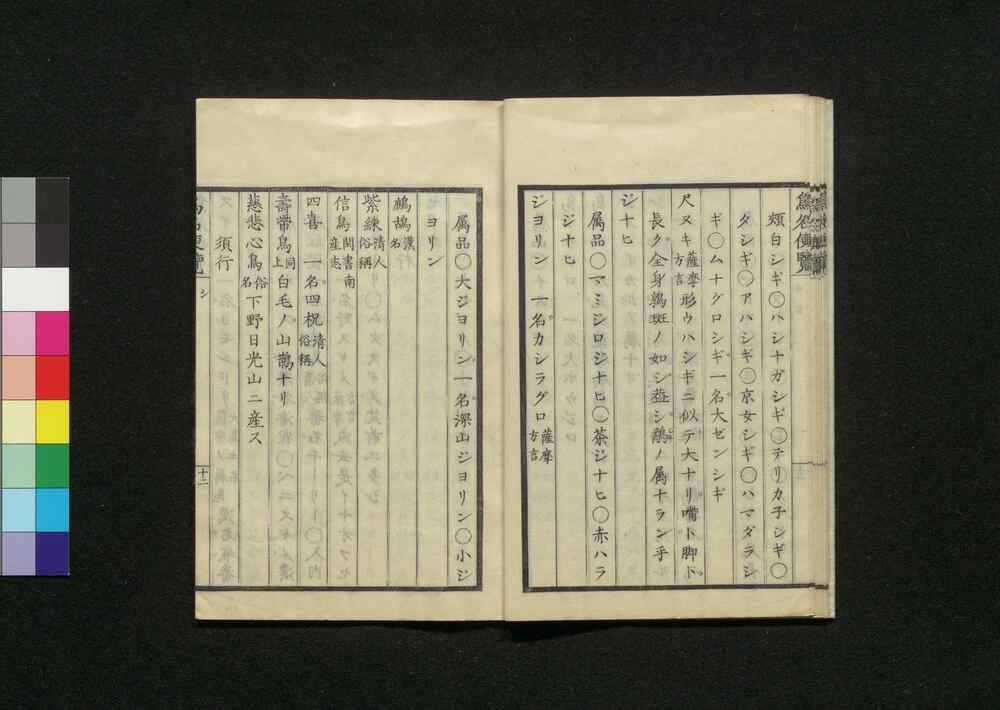 頬白シギ〇ハシナガシギ〇テリカ子シギ〇
タシギ〇アハシギ〇京女シギ〇ハマダラシ
ギ〇ムナグロシギ一名大ゼンシギ
尺ヌキ薩摩方言形ウハシギニ似テ大ナリ嘴ト脚ト
長ク全身鶉斑ノ如シ蓋シ鷸ノ属ナラン乎
ジナヒ
属品〇マミシロジナヒ〇茶ジナヒ〇赤ハラ
ジナヒ
ジヨリン 一名カシラグロ薩摩方言
属品〇大ジヨリン一名深山ジヨリン〇小ジ
ヨリン
鷓鴣漢名
紫練清人俗称
信鳥閩書南産志
四喜俗 一名四祝清人俗称
壽帯鳥同上白毛ノ山鵲ナリ
慈悲心鳥俗名下野日光山ニ産ス
須行
シ
十二